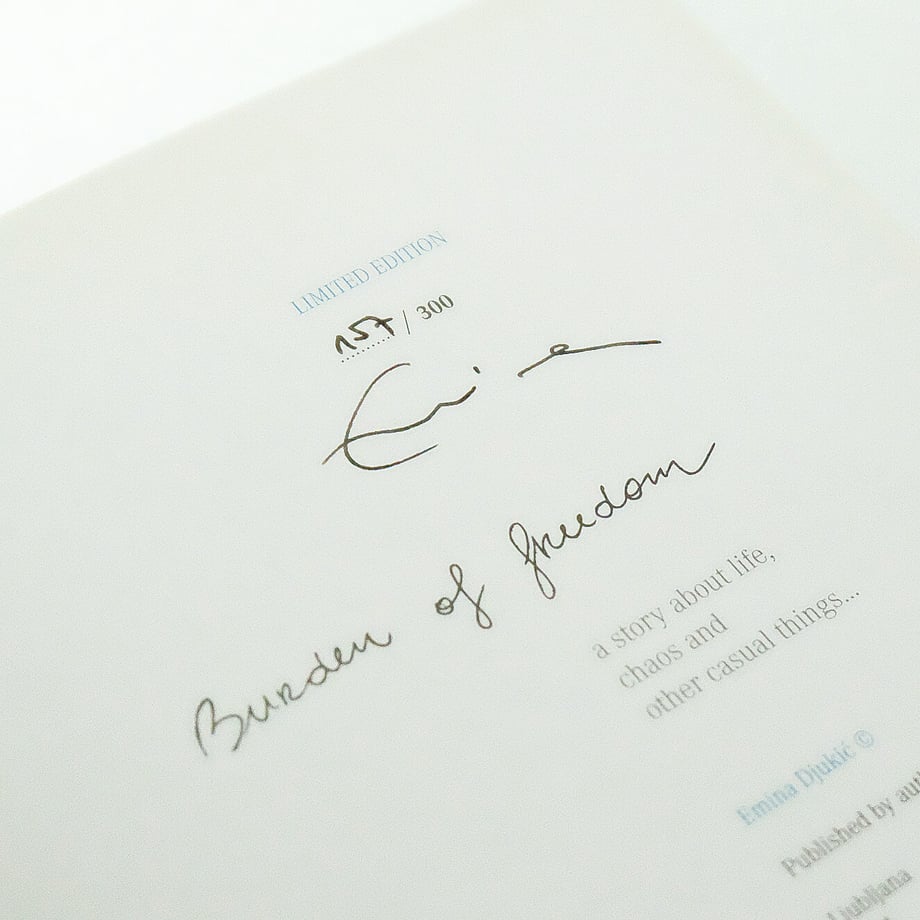 LIMITED EDITION
157 / 300
Burden of freedom
a story about life,
chaos and
other casual things...
Emina Djukić ©
Published by
Ljubljana